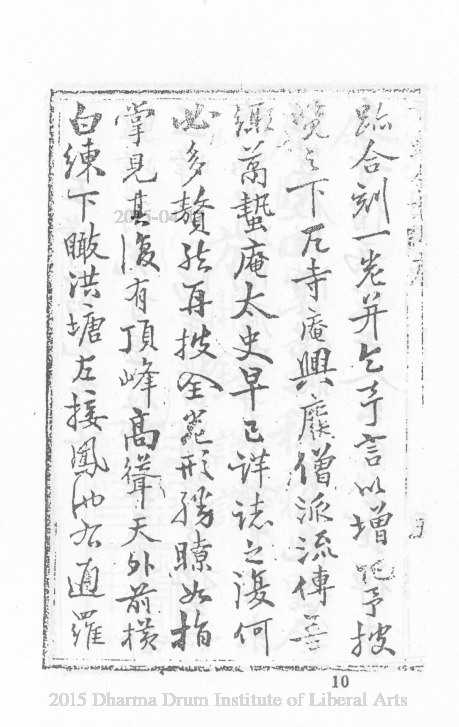 跡合刻一卷并乞予言以增予披
覽之下凡寺庵興廢僧派流傳
葛蟄庵太史早已詳誌之復何
必多贅然再披全卷形勝瞭如指
掌見其復有頂峰高聳天外前橫
白練下瞰洪塘左接鳳池右通羅
10
2015 Dharma Drum Institute of Liberal Arts